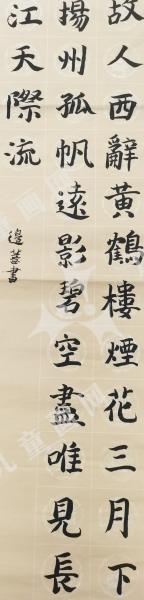 故人西辭黃鶴樓煙花三月下
揚州孤帆遠影碧空盡唯見長
江天際流
邊蕊書